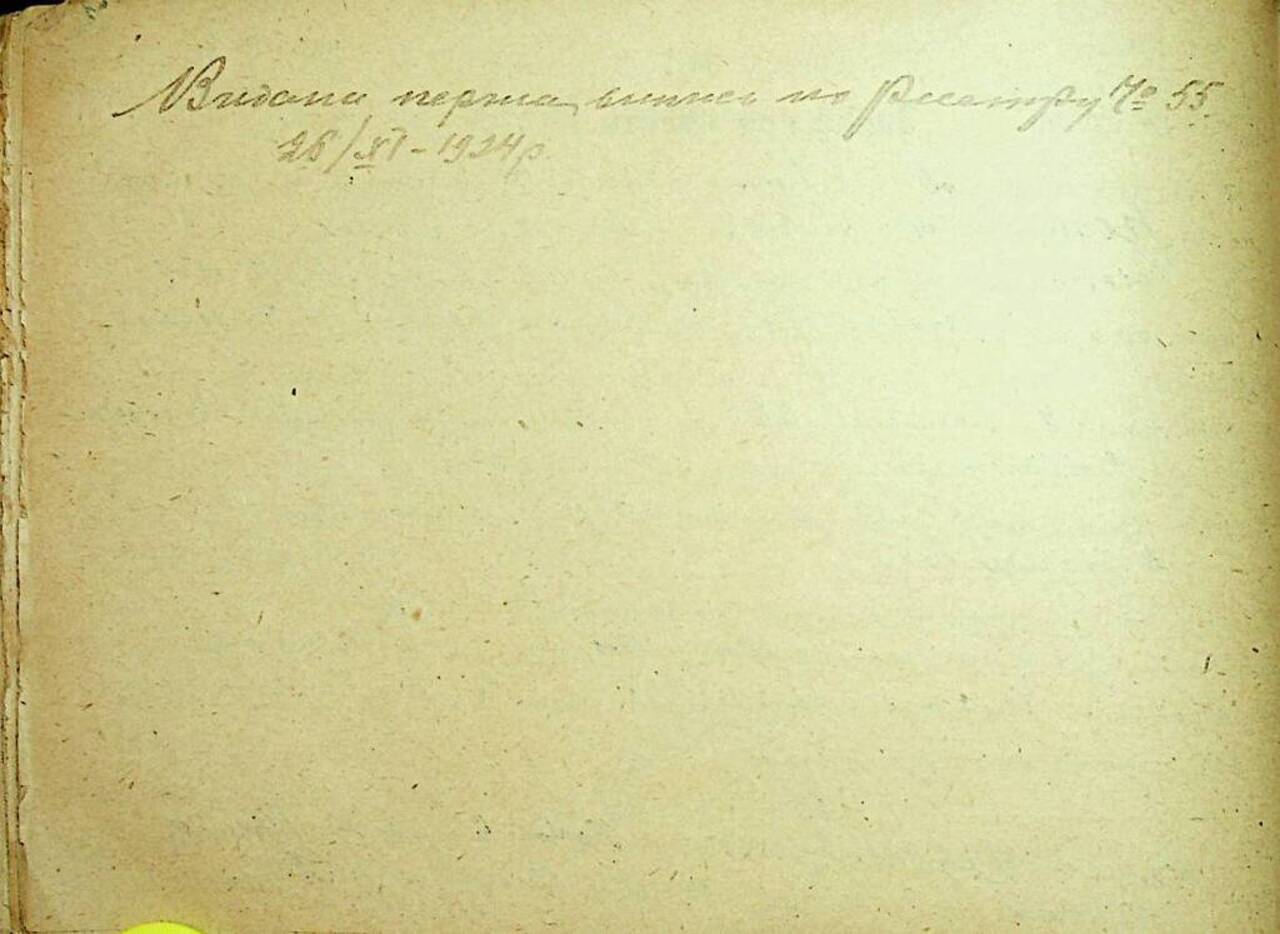 Видана перша випись по Реестру № 55.
26/XI-1924 р.